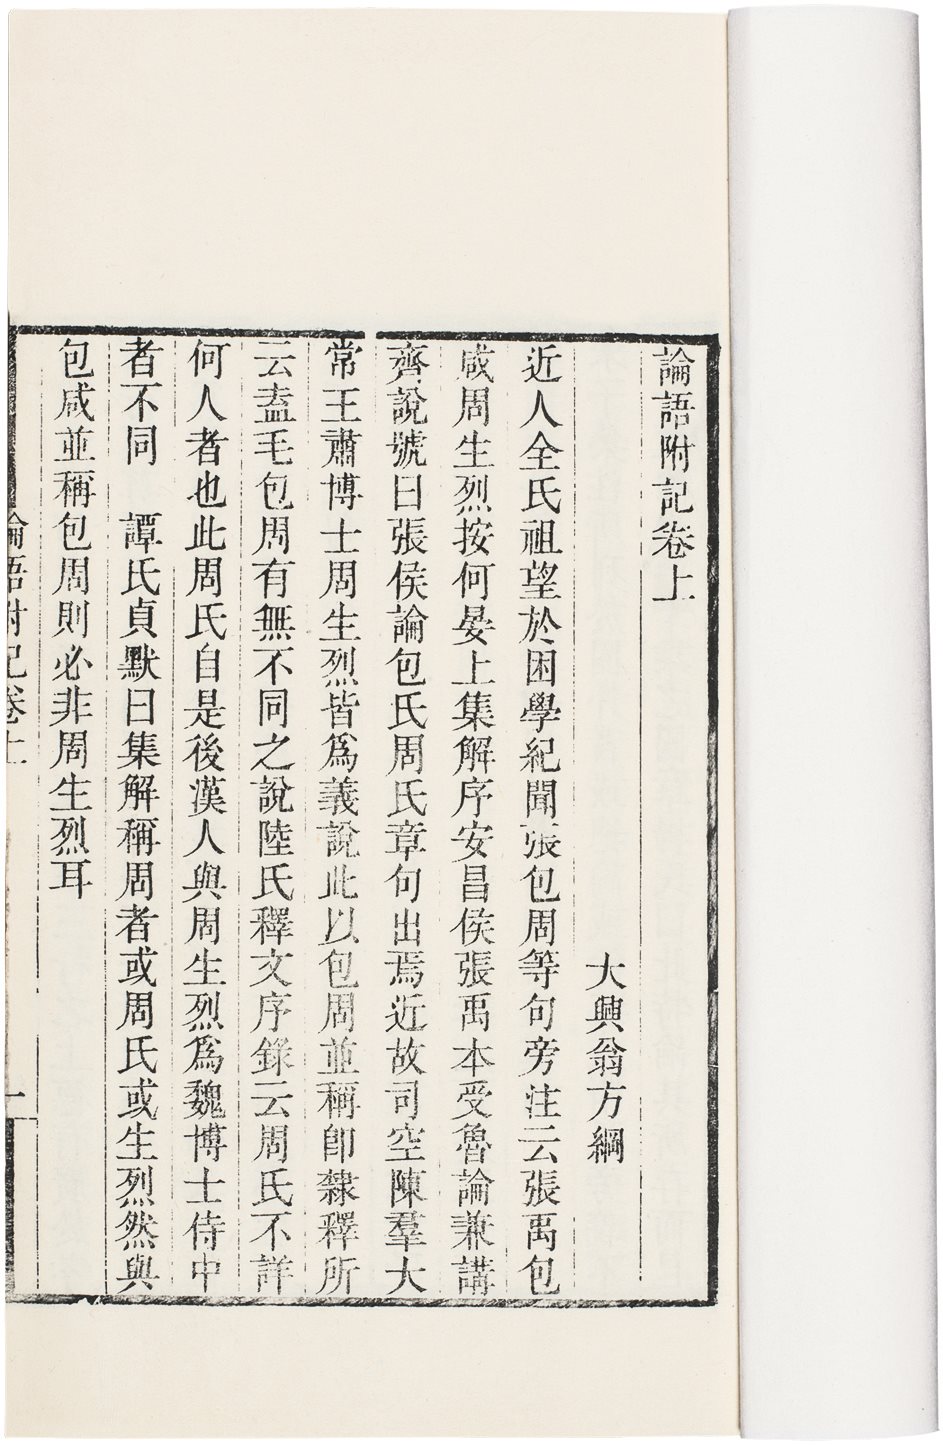 論語附記卷上
大興翁方綱
近人全氏祖望於困學紀聞張包周等句旁注云張禹包
咸周生烈按何晏上集解序安昌侯張禹本受魯論兼講
齊說號曰張侯論包氏周氏章句出焉近故司空陳羣大
常王肅博士周生烈皆爲義說此以包周並稱卽隸釋所
云盍毛包周有無不同之說陸氏釋文序錄云周氏不詳
何人者也此周氏自是後漢人與周生烈爲魏博士侍中
者不同　譚氏貞默曰集解稱周者或周氏或生烈然與
包咸並稱包周則必非周生烈耳
論語附記卷上
一